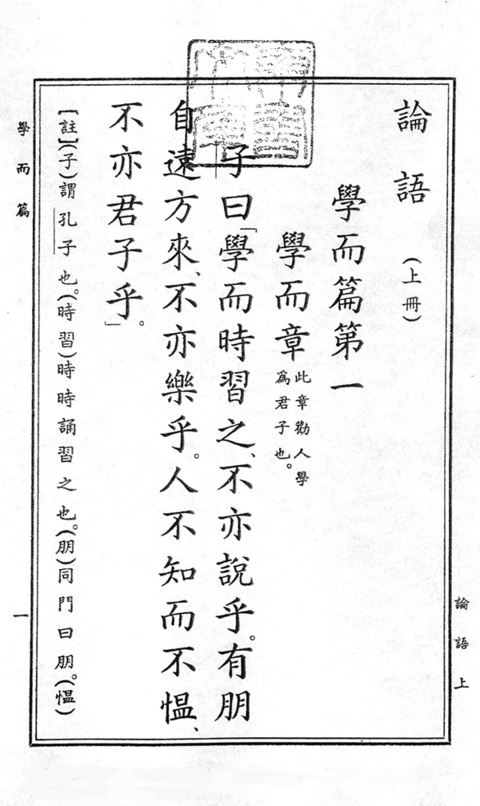 論語（上冊）
學而篇第一
學而章
此章勸人學
為君子也。
子曰「學而時習之、不亦說乎。有朋
自遠方來、不亦樂乎。人不知而不慍、
不亦君子乎。」
［註］（子）謂孔子也。（時習）時時誦習之也。（朋）同門曰朋。（慍）
論語上
學而篇
一